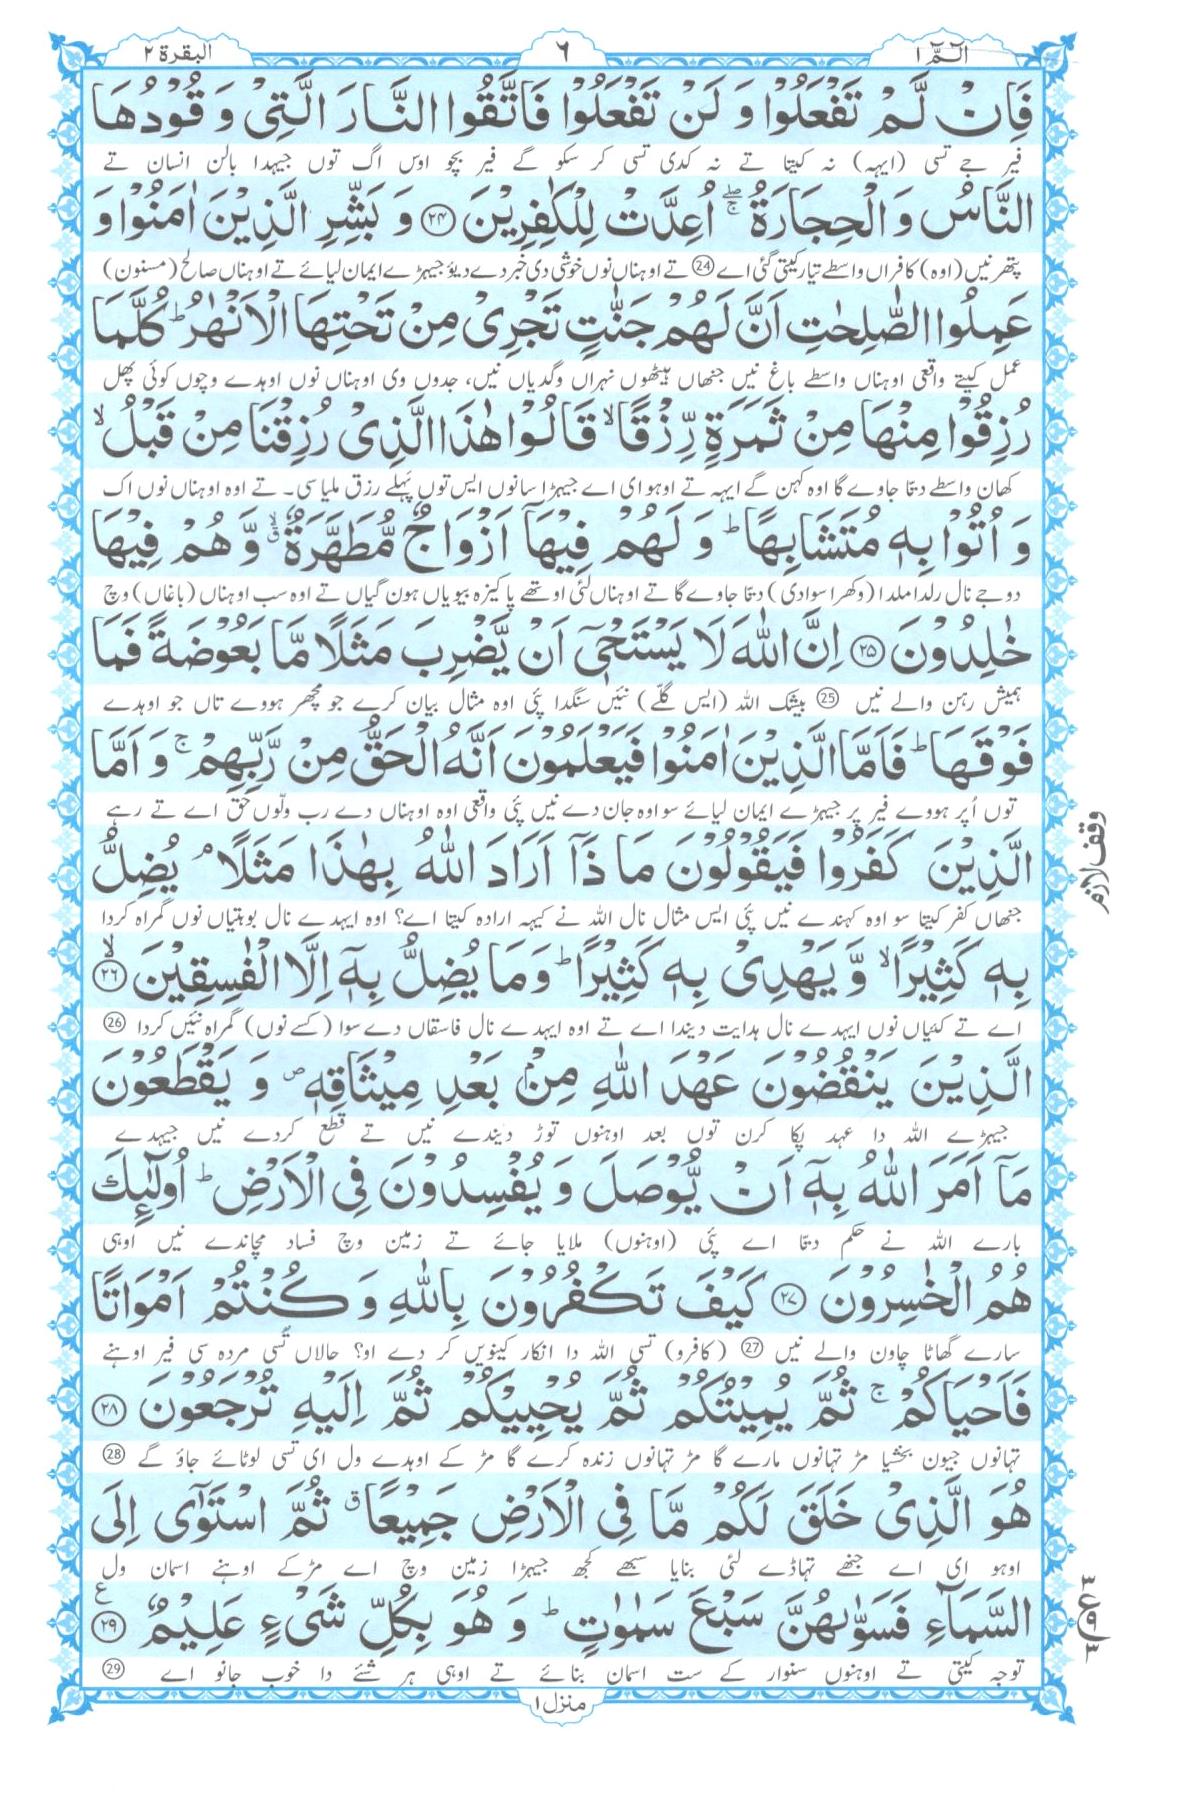 الٓـمّٓ ١
٦
البقرة ٢
فَاِنْ لَّمْ تَفْعَلُوْا وَ لَنْ تَفْعَلُوْا فَاتَّقُوا النَّارَ الَّتِیْ وَ قُوْدُهَا
فیر جے تسی (ایہہ) نہ کیتا تے نہ کدی تسی کر سکو گے فیر بچو اوس اگ توں جیہدا بالن انسان تے
النَّاسُ وَ الْحِجَارَةُ ۚۖ اُعِدَّتْ لِلْكٰفِرِیْنَ ﴿۲۴﴾ وَ بَشِّرِ الَّذِیْنَ اٰمَنُوْا وَ
پتھر نیں (اوہ) کافراں واسطے تیار کیتی گئی اے 24 تے اوہناں نوں خوشی دی خبر دے دیؤ جیہڑے ایمان لیائے تے اوہناں صالح (مسنون)
عَمِلُوا الصّٰلِحٰتِ اَنَّ لَهُمْ جَنّٰتٍ تَجْرِیْ مِنْ تَحْتِهَا الْاَنْهٰرُ ؕ كُلَّمَا
عمل کیتے واقعی اوہناں واسطے باغ نیں جنھاں ہیٹھوں نہراں وگدیاں نیں، جدوں وی اوہناں نوں اوہدے وچوں کوئی پھل
رُزِقُوْا مِنْهَا مِنْ ثَمَرَةٍ رِّزْقًا ۙ قَالُوْا هٰذَا الَّذِیْ رُزِقْنَا مِنْ قَبْلُ ۙ
کھان واسطے دتا جاوے گا اوہ کہن گے ایہہ تے اوہو ای اے جیہڑا سانوں ایس توں پہلے رزق ملیا سی۔ تے اوہ اوہناں نوں اک
وَ اُتُوْا بِهٖ مُتَشَابِهًا ؕ وَ لَهُمْ فِیْهَاۤ اَزْوَاجٌ مُّطَهَّرَةٌ ۙۗ وَّ هُمْ فِیْهَا
دوجے نال رلدا ملدا (وکھرا سوادی) دتا جاوے گا تے اوہناں لئی اوتھے پاکیزہ بیویاں ہون گیاں تے اوہ سب اوہناں (باغاں) وچ
خٰلِدُوْنَ ﴿۲۵﴾ اِنَّ اللّٰهَ لَا یَسْتَحْیٖۤ اَنْ یَّضْرِبَ مَثَلًا مَّا بَعُوْضَةً فَمَا
ہمیش رہن والے نیں 25 بیشک اللہ (ایس گلے) نئیں سنگدا پئی اوہ مثال بیان کرے جو مچھر ہووے تاں جو اوہدے
فَوْقَهَا ؕ فَاَمَّا الَّذِیْنَ اٰمَنُوْا فَیَعْلَمُوْنَ اَنَّهُ الْحَقُّ مِنْ رَّبِّهِمْ ۚ وَ اَمَّا
توں اُپر ہووے فیر پر جیہڑے ایمان لیائے سو اوہ جان دے نیں پئی واقعی اوہ اوہناں دے رب ولوں حق اے تے رہے
الَّذِیْنَ كَفَرُوْا فَیَقُوْلُوْنَ مَا ذَاۤ اَرَادَ اللّٰهُ بِهٰذَا مَثَلًا ۘ یُضِلُّ
وقف لازم
جنھاں کفر کیتا سو اوہ کہندے نیں پئی ایس مثال نال اللہ نے کیہہ ارادہ کیتا اے؟ اوہ ایہدے نال بوہتیاں نوں گمراہ کردا
بِهٖ كَثِیْرًا ۙ وَّ یَهْدِیْ بِهٖ كَثِیْرًا ؕ وَ مَا یُضِلُّ بِهٖۤ اِلَّا الْفٰسِقِیْنَ ﴿۲۶﴾ ۙ
اے تے کئیاں نوں ایہدے نال ہدایت دیندا اے تے اوہ ایہدے نال فاسقاں دے سوا (کسے نوں) گمراہ نئیں کردا 26
الَّذِیْنَ یَنْقُضُوْنَ عَهْدَ اللّٰهِ مِنْۢ بَعْدِ مِیْثَاقِهٖ ۪ وَ یَقْطَعُوْنَ
جیہڑے اللہ دا عہد پکا کرن توں بعد اوہنوں توڑ دیندے نیں تے قطع کردے نیں جیہدے
مَاۤ اَمَرَ اللّٰهُ بِهٖۤ اَنْ یُّوْصَلَ وَ یُفْسِدُوْنَ فِی الْاَرْضِ ؕ اُولٰٓىِٕكَ
بارے اللہ نے حکم دتا اے پئی (اوہنوں) ملایا جائے تے زمین وچ فساد مچاندے نیں اوہی
هُمُ الْخٰسِرُوْنَ ﴿۲۷﴾ كَیْفَ تَكْفُرُوْنَ بِاللّٰهِ وَ كُنْتُمْ اَمْوَاتًا
سارے گھاٹا چاون والے نیں 27 (کافرو) تسی اللہ دا انکار کینویں کر دے او؟ حالاں تُسی مردہ سی فیر اوہنے
فَاَحْیَاكُمْ ۚ ثُمَّ یُمِیْتُكُمْ ثُمَّ یُحْیِیْكُمْ ثُمَّ اِلَیْهِ تُرْجَعُوْنَ ﴿۲۸﴾
تہانوں جیون بخشیا مڑ تہانوں مارے گا مڑ تہانوں زندہ کرے گا مڑ کے اوہدے ول ای تسی لوٹائے جاؤ گے 28
هُوَ الَّذِیْ خَلَقَ لَكُمْ مَّا فِی الْاَرْضِ جَمِیْعًا ۗ ثُمَّ اسْتَوٰۤی اِلَی
اوہو ای اے جنھے تہاڈے لئی بنایا سبھے کجھ جیہڑا زمین وچ اے مڑکے اوہنے اسمان ول
السَّمَآءِ فَسَوّٰىهُنَّ سَبْعَ سَمٰوٰتٍ ؕ وَ هُوَ بِكُلِّ شَیْءٍ عَلِیْمٌ ﴿۲۹﴾ ع
٣ ع ٩ ٣
توجہ کیتی تے اوہنوں سنوار کے ست اسمان بنائے تے اوہی ہر شئے دا خوب جانو اے 29
منزل ١